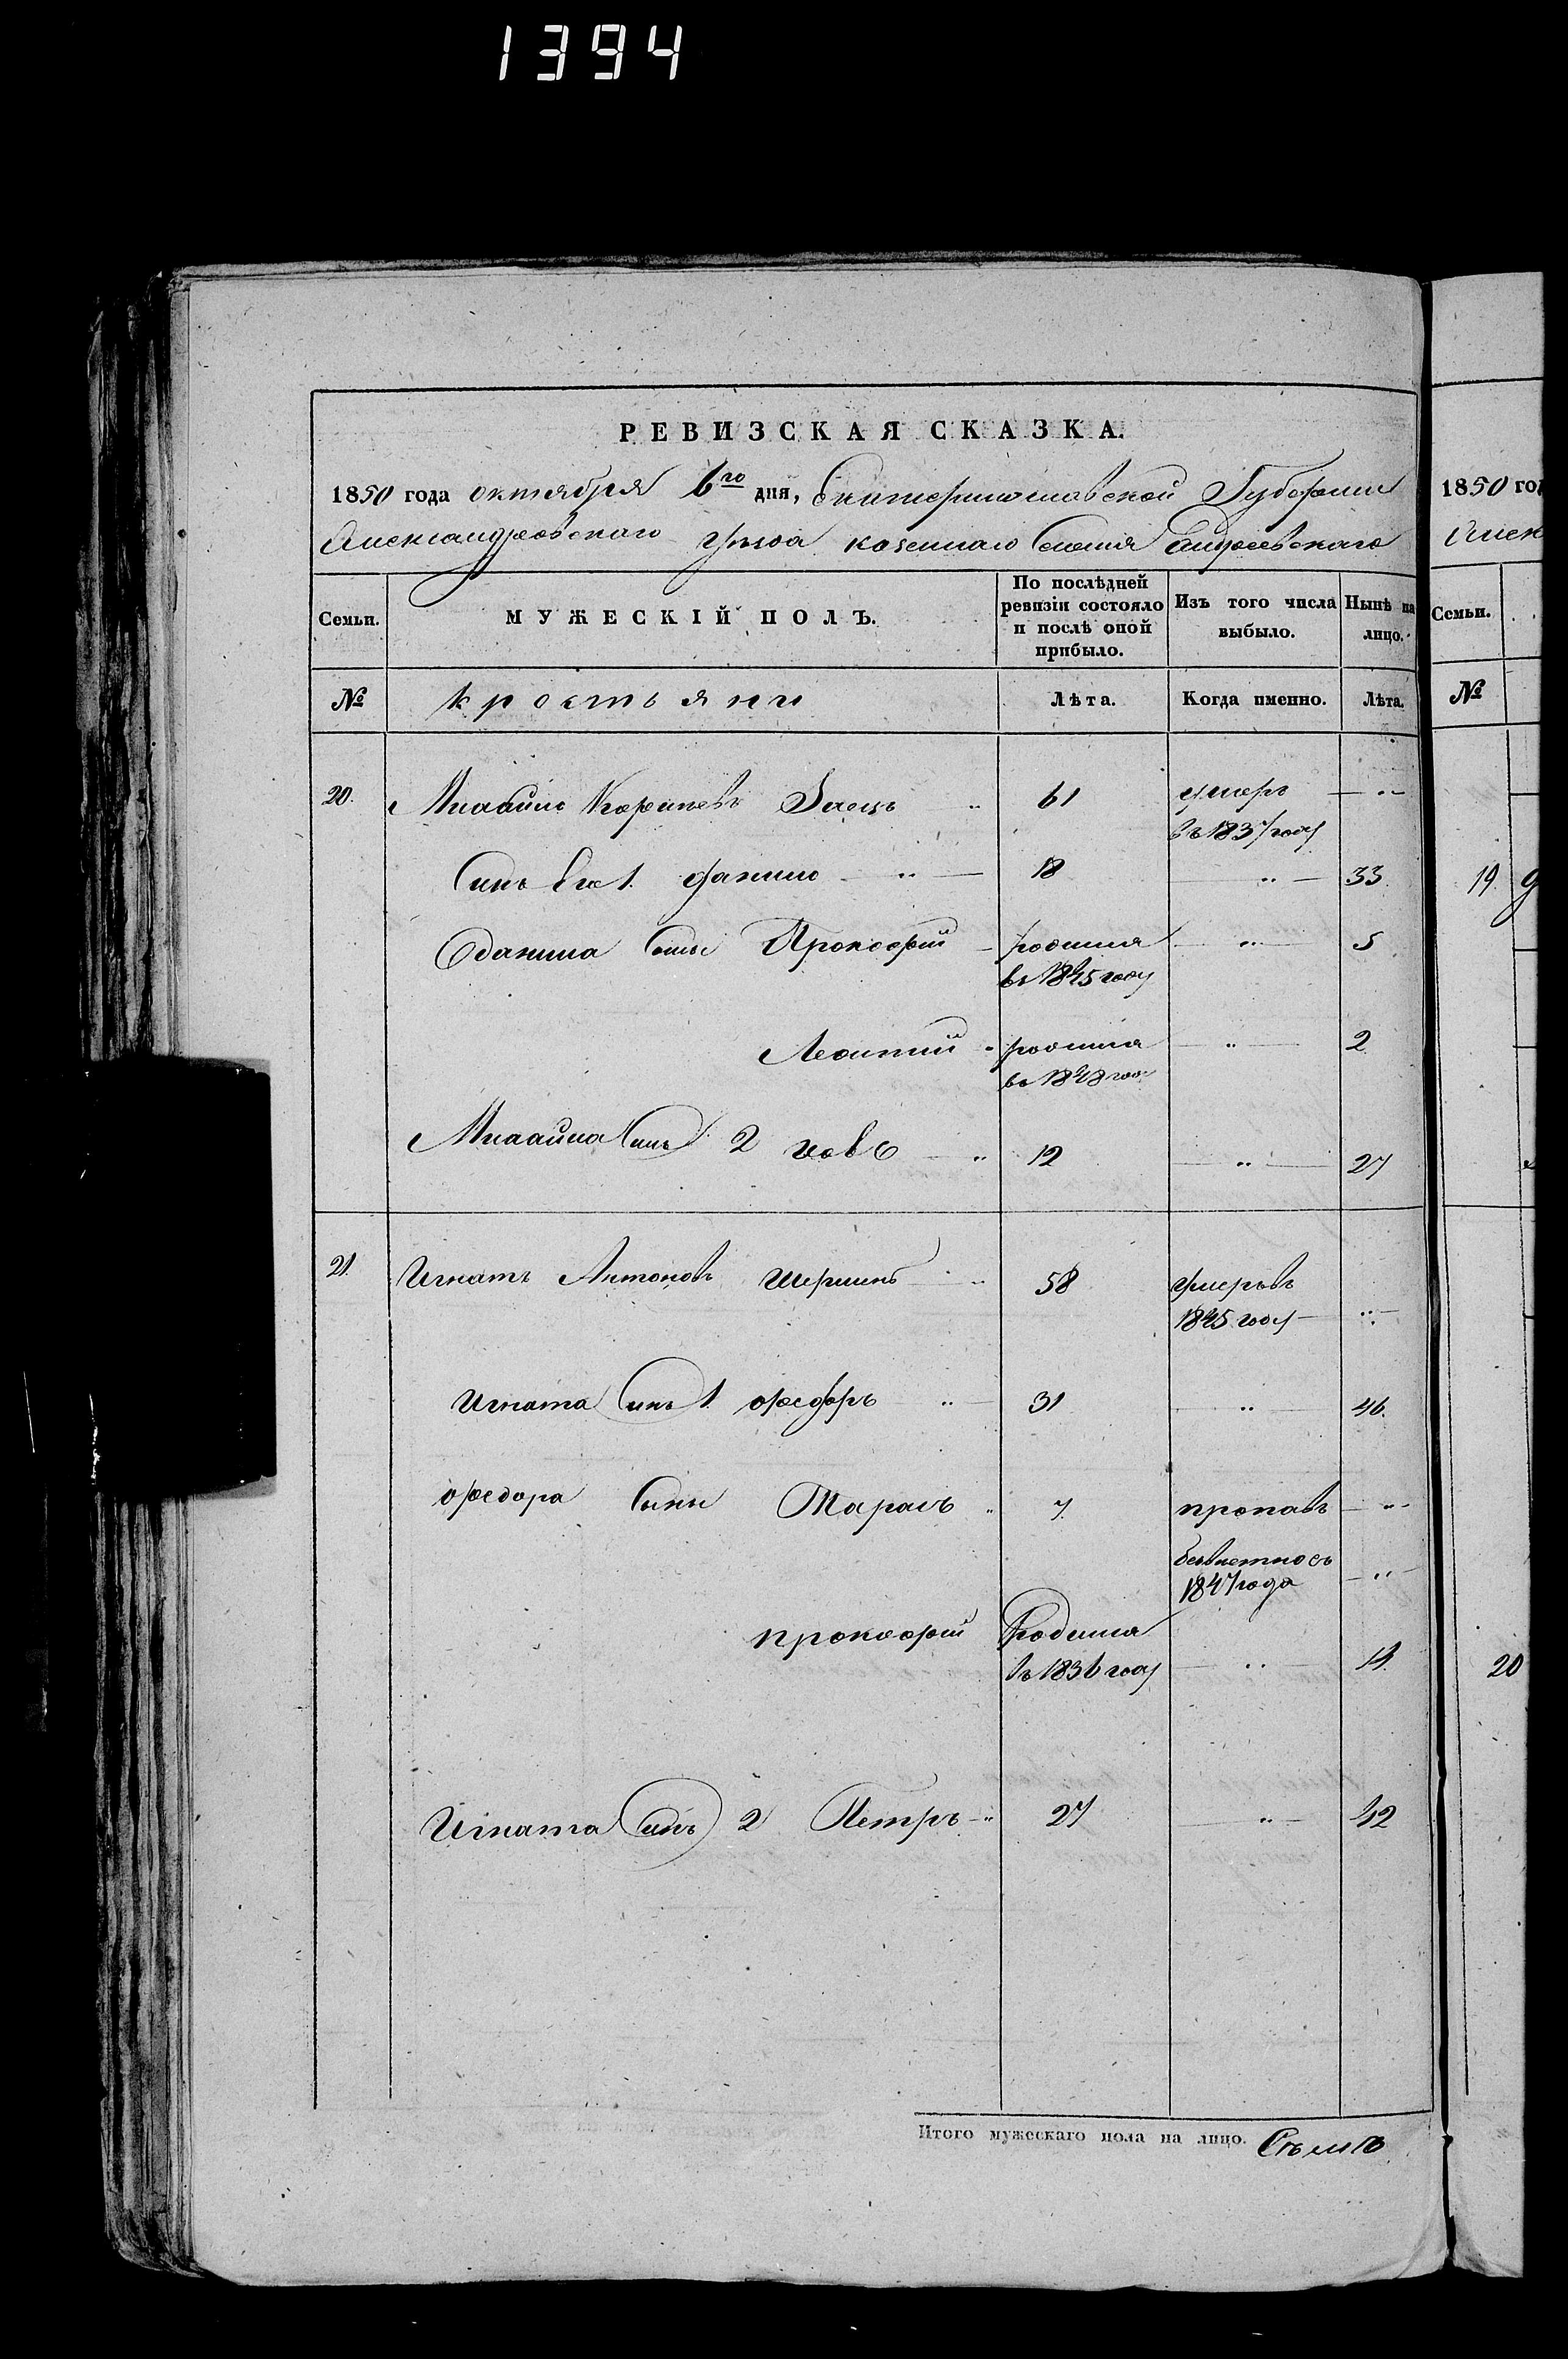 1394
РЕВИЗСКАЯ СКАЗКА.
1850 года октября 6го дня, Екатеринославской Губернии
Александровского уезда казенного Селения Андреевского
Семьи. МУЖЕСКІЙ ПОЛЪ. По послѣдней ревизіи состояло и послѣ оной прибыло. Изъ того числа выбыло. Нынѣ на лицо.
№ крестьяни Лѣта. Когда именно. Лѣта.
20. Михайло Заецъ 61 умеръ
въ 1837 году
Синъ Его 1. Данило 18 33.
Данила Сыны Прокофий родился 5
въ 1845 году
Леонтий родился 2
въ 1848 году
Михайла Синъ 2 Иовъ 12 27
21. Игнатъ Антоновъ 58 умеръ въ
1845 году
Игната Синъ 1. Федоръ 31 46.
Федора Сыны Тарасъ 7. пропавъ
безвестно съ
1847 года
прокофий Родился
въ 1836 году
Игната Синъ 2 Петръ 27 42
Итого мужескаго пола на лицо. Семь
1850 год
Алек
Семьи.
№
19
20